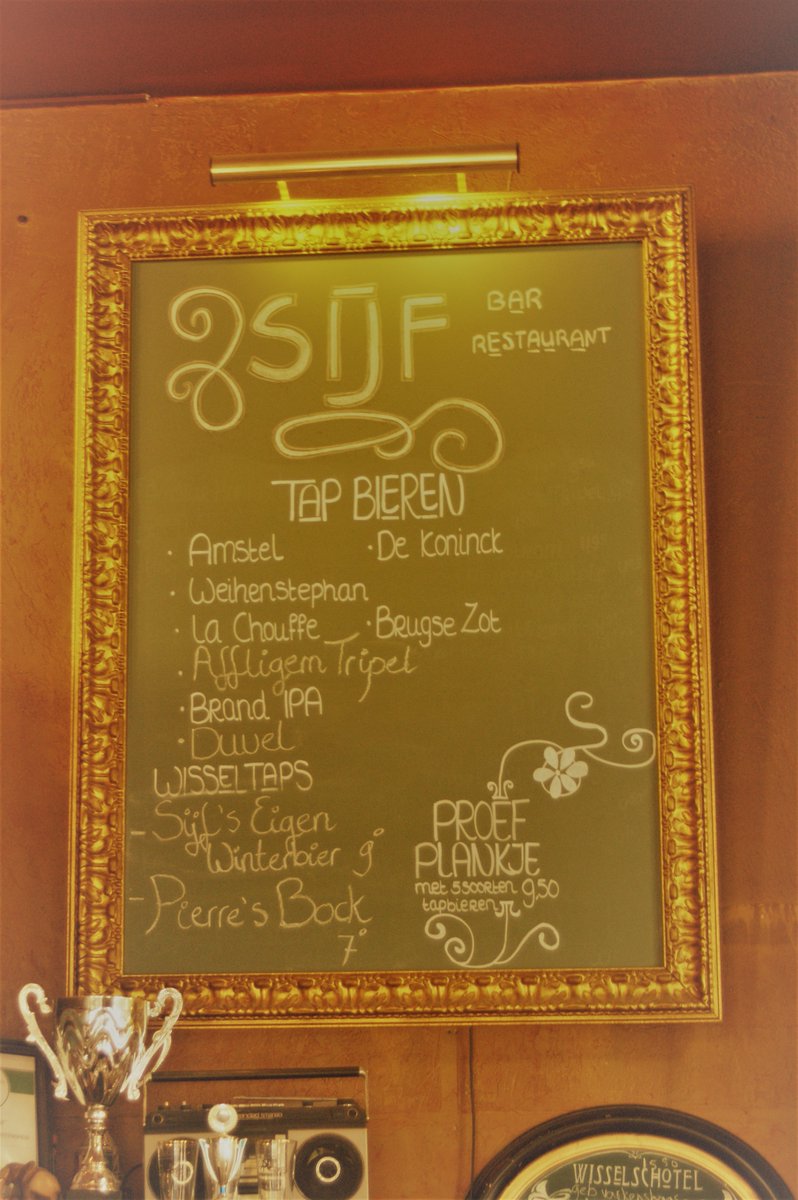 SIJF
BAR
RESTAURANT
TAP BIEREN
· Amstel
· De Koninck
· Weihenstephan
· La Chouffe
· Brugse Zot
· Affligem Tripel
· Brand IPA
· Duvel
WISSELTAPS
- Sijf's Eigen
Winterbier 9°
- Pierre's Bock
7°
PROEF
PLANKJE
met 5 soorten
tapbieren 9,50
WISSELSCHOTEL